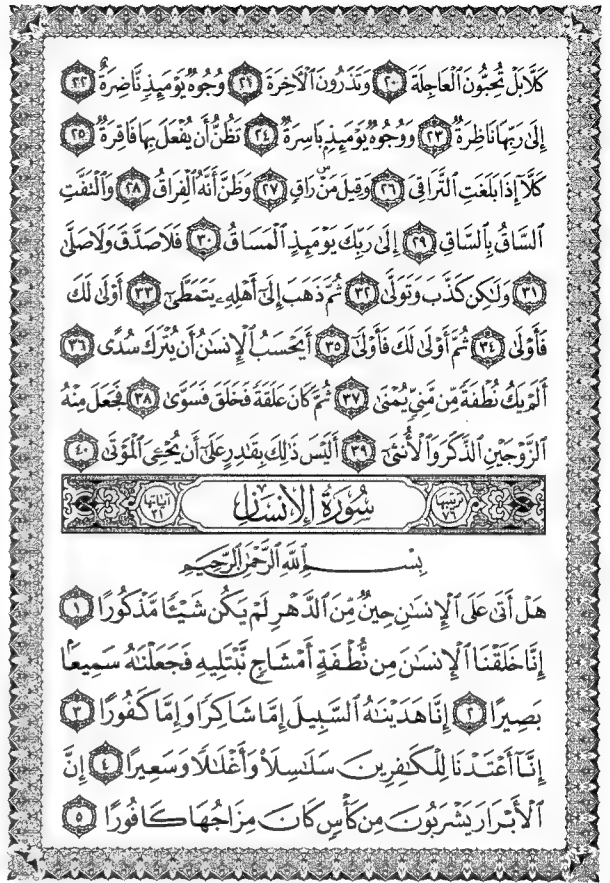 كَلَّا بَلْ تُحِبُّونَ ٱلْعَاجِلَةَ ٢٠ وَتَذَرُونَ ٱلْأٓخِرَةَ ٢١ وُجُوهٌ يَوْمَئِذٍ نَّاضِرَةٌ ٢٢
إِلَىٰ رَبِّهَا نَاظِرَةٌ ٢٣ وَوُجُوهٌ يَوْمَئِذٍۭ بَاسِرَةٌ ٢٤ تَظُنُّ أَن يُفْعَلَ بِهَا فَاقِرَةٌ ٢٥
كَلَّآ إِذَا بَلَغَتِ ٱلتَّرَاقِىَ ٢٦ وَقِيلَ مَنْۜ رَاقٍ ٢٧ وَظَنَّ أَنَّهُ ٱلْفِرَاقُ ٢٨ وَٱلْتَفَّتِ
ٱلسَّاقُ بِٱلسَّاقِ ٢٩ إِلَىٰ رَبِّكَ يَوْمَئِذٍ ٱلْمَسَاقُ ٣٠ فَلَا صَدَّقَ وَلَا صَلَّىٰ
٣١ وَلَٰكِن كَذَّبَ وَتَوَلَّىٰ ٣٢ ثُمَّ ذَهَبَ إِلَىٰٓ أَهْلِهِۦ يَتَمَطَّىٰٓ ٣٣ أَوْلَىٰ لَكَ
فَأَوْلَىٰ ٣٤ ثُمَّ أَوْلَىٰ لَكَ فَأَوْلَىٰٓ ٣٥ أَيَحْسَبُ ٱلْإِنسَٰنُ أَن يُتْرَكَ سُدًى ٣٦
أَلَمْ يَكُ نُطْفَةً مِّن مَّنِىٍّ يُمْنَىٰ ٣٧ ثُمَّ كَانَ عَلَقَةً فَخَلَقَ فَسَوَّىٰ ٣٨ فَجَعَلَ مِنْهُ
ٱلزَّوْجَيْنِ ٱلذَّكَرَ وَٱلْأُنثَىٰٓ ٣٩ أَلَيْسَ ذَٰلِكَ بِقَٰدِرٍ عَلَىٰٓ أَن يُحْـِۧىَ ٱلْمَوْتَىٰ ٤٠
ترتيبها ٧٦ سُورَةُ ٱلْإِنسَانِ آياتها ٣١
بِسْمِ ٱللَّهِ ٱلرَّحْمَٰنِ ٱلرَّحِيمِ
هَلْ أَتَىٰ عَلَى ٱلْإِنسَٰنِ حِينٌ مِّنَ ٱلدَّهْرِ لَمْ يَكُن شَيْـًٔا مَّذْكُورًا ١
إِنَّا خَلَقْنَا ٱلْإِنسَٰنَ مِن نُّطْفَةٍ أَمْشَاجٍ نَّبْتَلِيهِ فَجَعَلْنَٰهُ سَمِيعًۢا
بَصِيرًا ٢ إِنَّا هَدَيْنَٰهُ ٱلسَّبِيلَ إِمَّا شَاكِرًا وَإِمَّا كَفُورًا ٣
إِنَّآ أَعْتَدْنَا لِلْكَٰفِرِينَ سَلَٰسِلَا۟ وَأَغْلَٰلًا وَسَعِيرًا ٤ إِنَّ
ٱلْأَبْرَارَ يَشْرَبُونَ مِن كَأْسٍ كَانَ مِزَاجُهَا كَافُورًا ٥